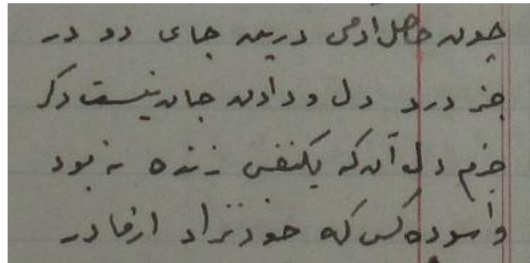 چون حاصل آدمی درین جای دو در
جز درد دل و دادن جان نیست دگر
خرم دل آن که یکنفس زنده نبود
و آسوده کس که خود نزاد از مادر